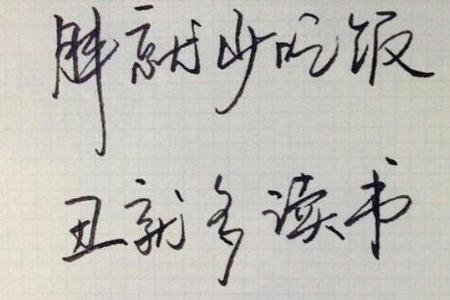 胖就少吃饭
丑就多读书